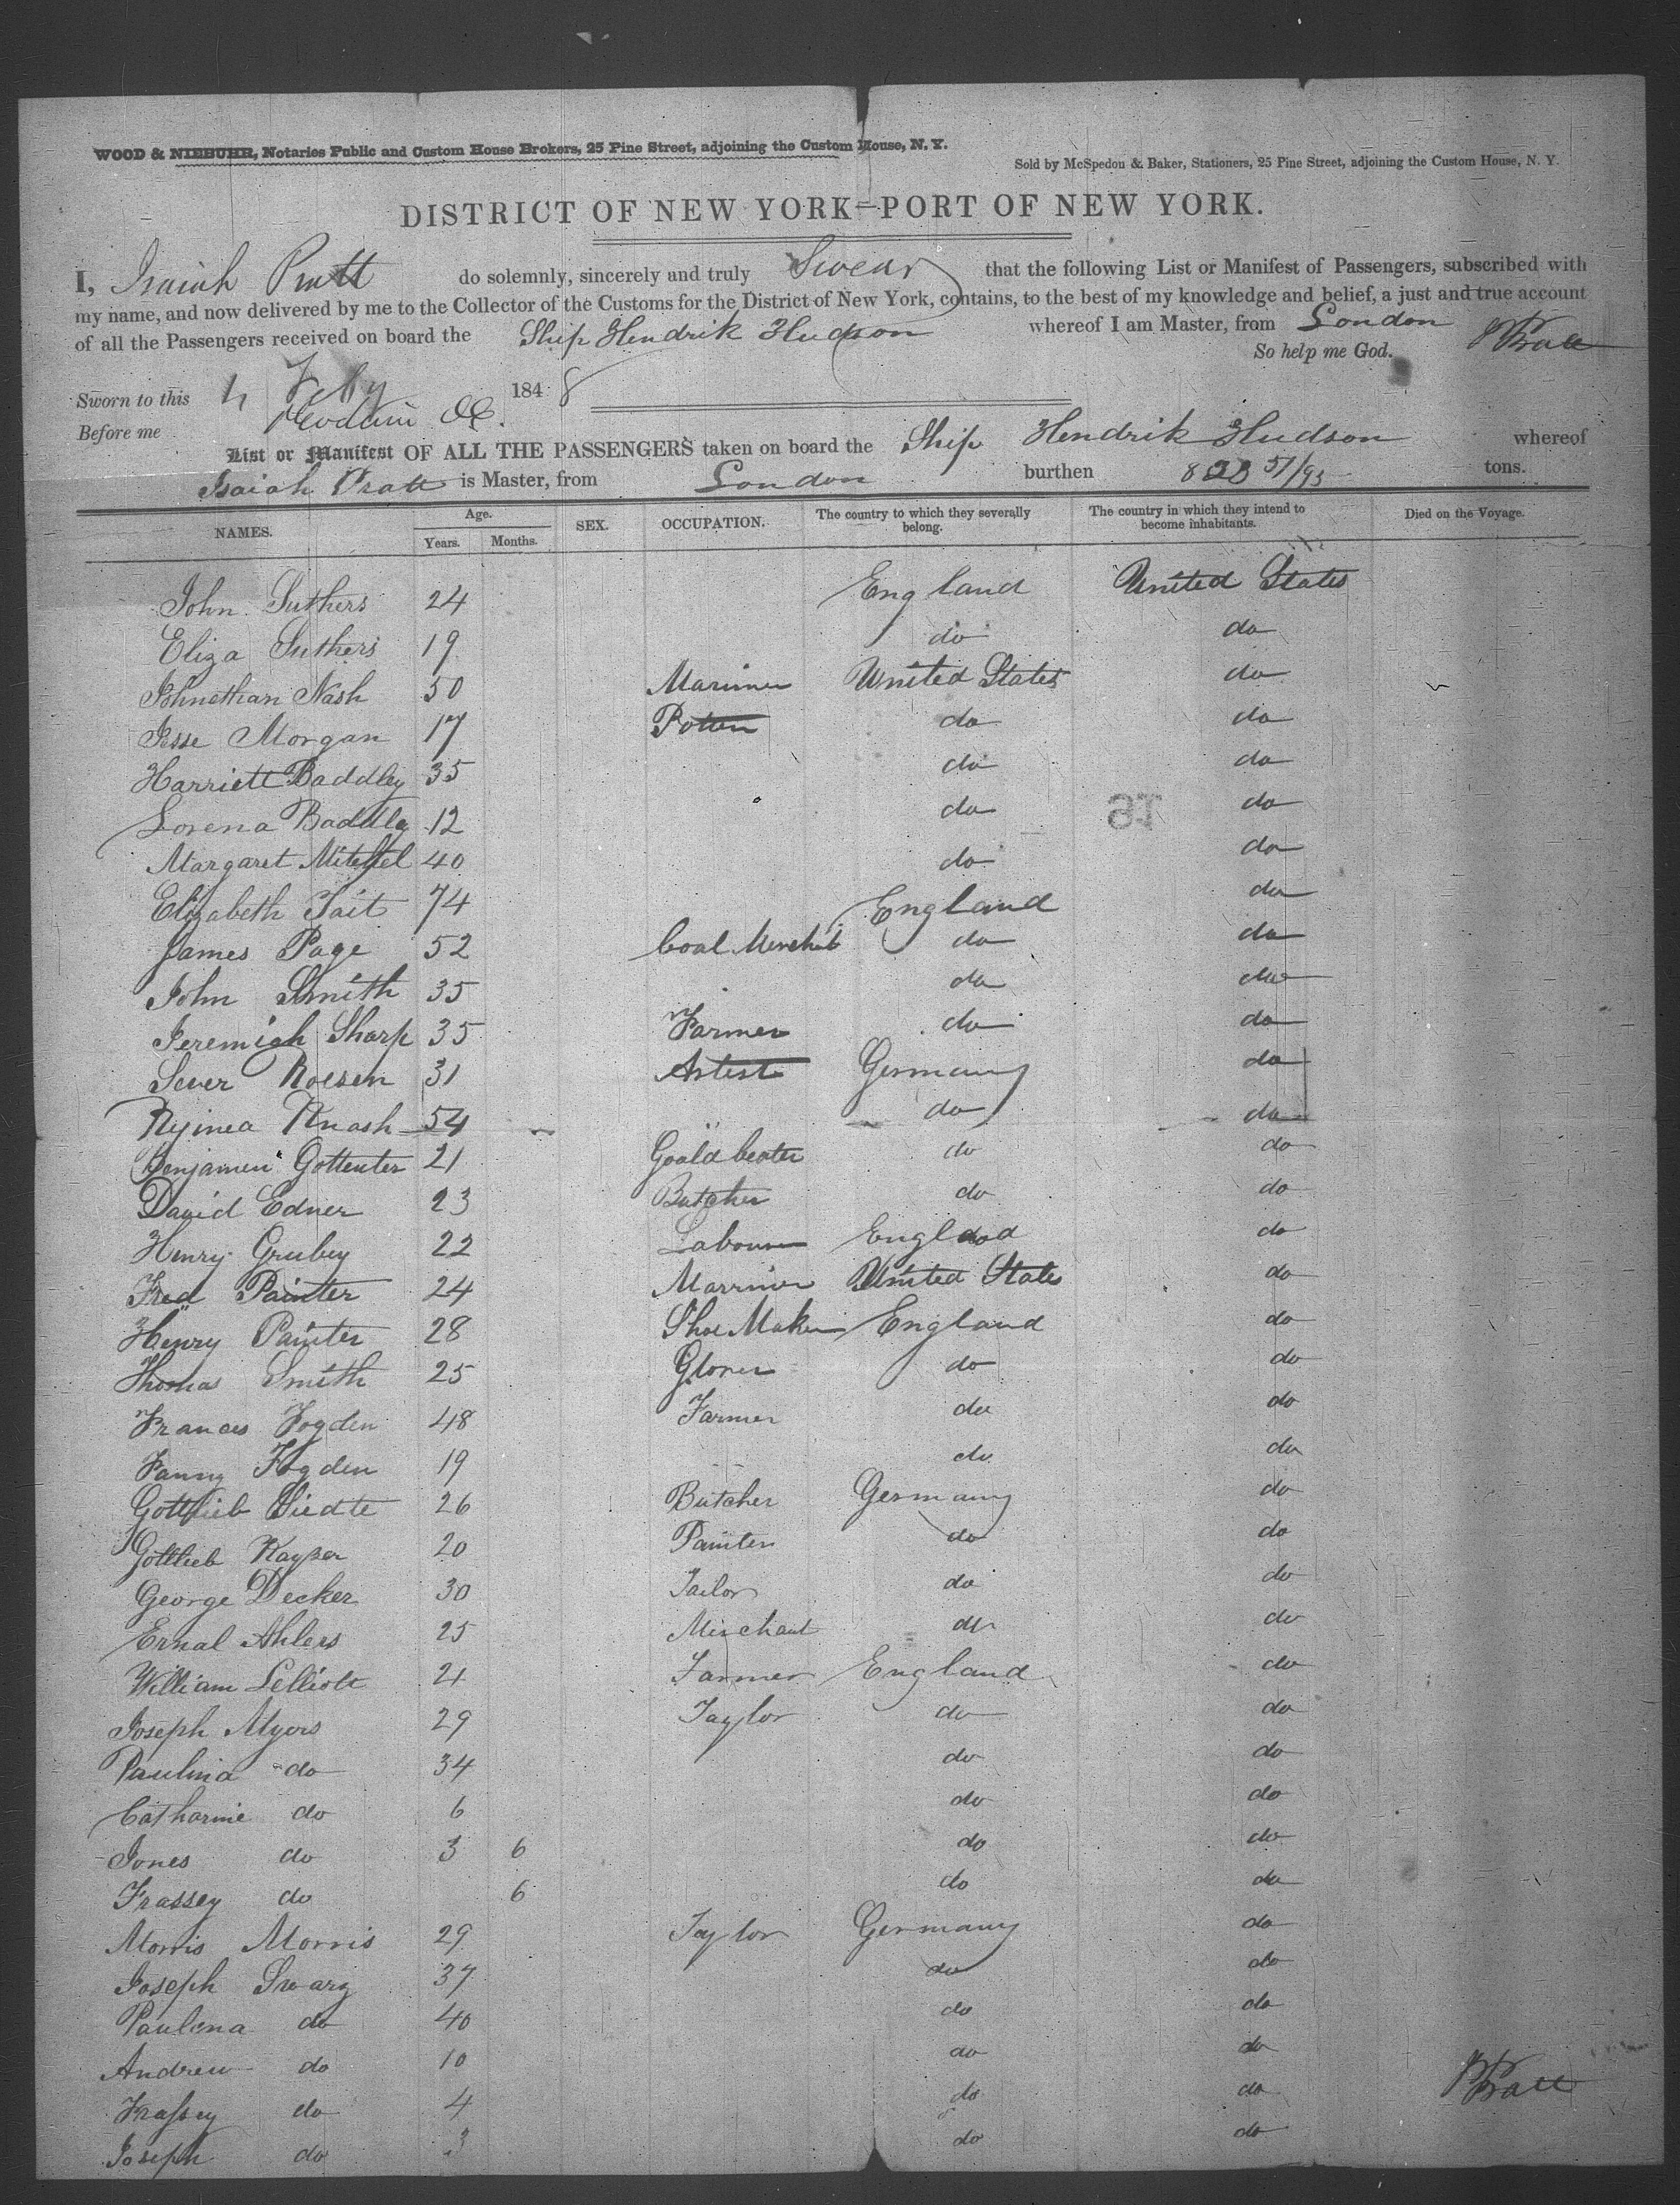 WOOD & NIEBUHR, Notaries Public and Custom House Brokers, 25 Pine Street, adjoining the Custom House, N. Y.
Sold by McSpedon & Baker, Stationers, 25 Pine Street, adjoining the Custom House, N. Y.
DISTRICT OF NEW YORK—PORT OF NEW YORK.
I, Isaiah Pratt do solemnly, sincerely and truly Swear that the following List or Manifest of Passengers, subscribed with
my name, and now delivered by me to the Collector of the Customs for the District of New York, contains, to the best of my knowledge and belief, a just and true account
of all the Passengers received on board the Ship Hendrik Hudson whereof I am Master, from London
So help me God. I Pratt
Sworn to this 4 Feby 1848
Before me
List or Manifest OF ALL THE PASSENGERS taken on board the Ship Hendrik Hudson whereof
Isaiah Pratt is Master, from London burthen 823 51/95 tons.
NAMES. Age. Years. Months. SEX. OCCUPATION. The country to which they severally belong. The country in which they intend to become inhabitants. Died on the Voyage.
John Suthers 24 England United States
Eliza Suthers 19 do do
Johnethan Nash 50 Mariner United States do
Jesse Morgan 17 Potter do do
Harriett Baddley 35 do do
Lorena Baddley 12 do do
Margaret Mitchel 40 do do
Elizabeth Tait 74 England do
James Page 52 Coal Merchat do do
John Smith 35 do do
Jeremiah Sharp 35 Farmer do do
Sever Roesen 31 Artist Germany do
Rejinea Knash 54 do do
Benjamen Gottenter 21 Goald beater do do
David Edner 23 Butcher do do
Henry Grubey 22 Labourer England do
Fred Painter 24 Marriner United States do
Henry Painter 28 Shoe Maker England do
Thomas Smith 25 Glover do do
Frances Fogden 48 Farmer do do
Fanny Fogden 19 do do
Gottlieb Diedte 26 Butcher Germany do
Gottlieb Kayser 20 Painter do do
George Decker 30 Tailor do do
Ernal Ahlers 25 Merchant do do
William Lelliott 21 Farmer England do
Joseph Myers 29 Taylor do do
Paulina do 34 do do
Catharine do 6 do do
Jones do 3 6 do do
Frassey do 6 do do
Morris Morris 29 Taylor Germany do
Joseph Swarz 37 do do
Paulena do 40 do do
Andrew do 10 do do
Frassey do 4 do do
I Pratt
Joseph do 3 do do